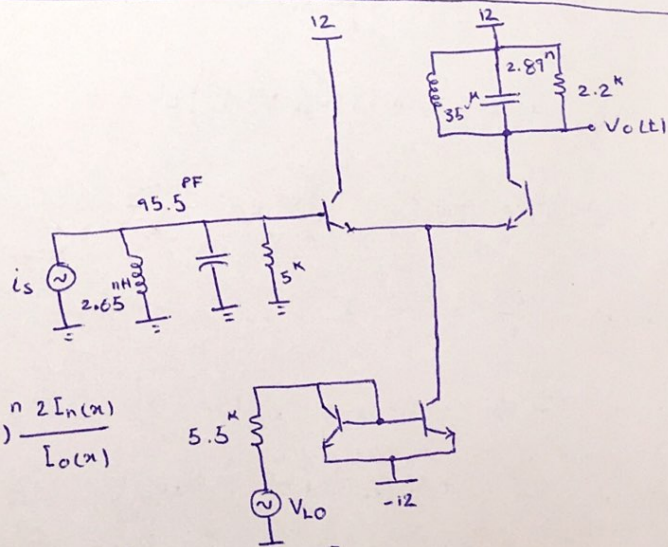 12
12
2.89ⁿ
35ᴹ
2.2ᴷ
Vo(t)
95.5 PF
is
nH
2.65
5ᴷ
n 2In(x)
) Io(x)
5.5ᴷ
VLO
-12